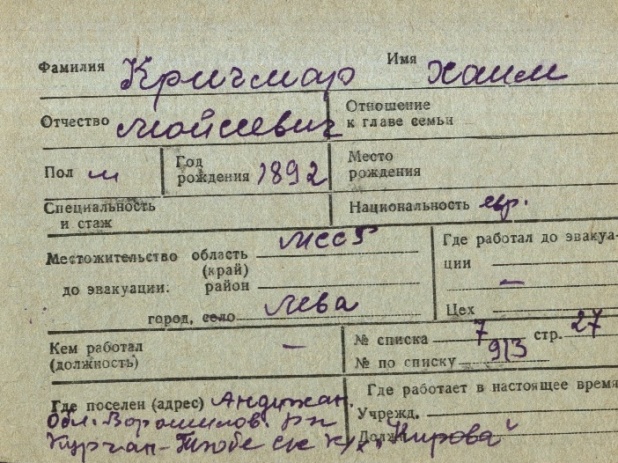 Фамилия Кричмар Имя Хаим
Отчество Мойсеевич Отношение к главе семьи
Пол м Год рождения 1892 Место рождения
Специальность и стаж Национальность евр.
Местожительство область (край) МССР Где работал до эвакуа-
до эвакуации: район ции —
город, село Лева Цех
Кем работал (должность) — № списка 7 стр. 27
№ по списку 913
Где поселен (адрес) Андижан. Где работает в настоящее время
Обл. Ворошилов. р-н Учрежд.
Курган-Тюбе с/с к/х „Кирова" Должн